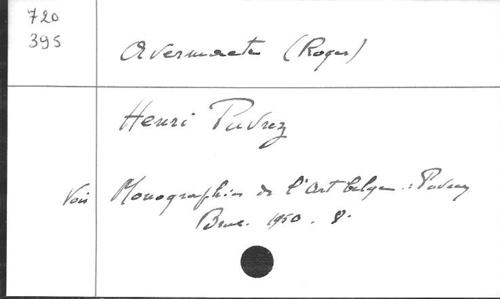 720
395
Avermaete (Roger)
Henri Puvrez
Voir Monographies de l'art belge : Puvrez
Brux. 1950. 8.